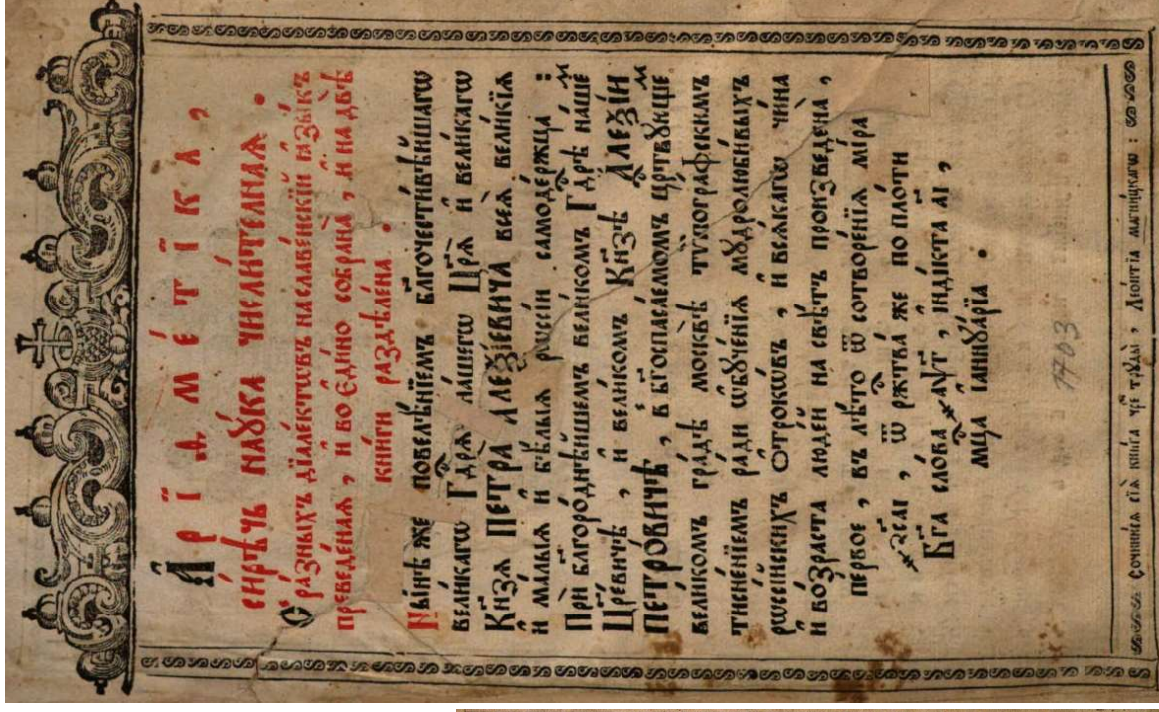 А҆РІ́ѲМЕ́ТІКА,
си́рѣчь наꙋ́ка числи́телнаѧ.
С̾ ра́зныхъ дїале́ктѡвъ на славе́нскїй ѧ҆зы́къ
преведе́наѧ, и҆ во є҆ди́но собрана̀, и҆ на двѣ̀
кни́ги раздѣле́на.
Ны́нѣ же повелѣ́нїемъ бл҃гочести́вѣйшагѡ
вели́кагѡ гдⷭ҇рѧ на́шегѡ цр҃ѧ̀ и҆ вели́кагѡ
кн҃зѧ ПЕТРА̀ А҆ЛЕѮІ́ЕВИЧА всеѧ̀ вели́кїѧ
и҆ ма́лыѧ и҆ бѣ́лыѧ рѡссі́и самоде́ржца:
Прѝ бл҃горо́днѣйшемъ вели́комъ гдⷭ҇рѣ̀ на́шемъ
цр҃е́вичѣ, и҆ вели́комъ кн҃зѣ А҆ЛЕѮІ́И
ПЕТРО́ВИЧѢ, в̾ бг҃оспаса́емомъ црⷭ҇твꙋ́ющемъ
вели́комъ гра́дѣ москвѣ̀ тѷпогра́фскимъ
тисне́нїемъ ра́ди ѡ҆бꙋче́нїѧ мꙋдролюби́выхъ
рѡссі́йскихъ ѻ҆́трокѡвъ, и҆ всѧ́кагѡ чи́на
и҆ во́зраста люде́й на свѣ́тъ произведена̀,
пе́рвое, въ лѣ́то ѿ сотворе́нїѧ мі́ра
҂з҃саі, ѿ рⷤтва̀ же по пло́ти
бг҃а сло́ва ҂аѱг҃, і҆ндї́кта аі҃,
мцⷭ҇а і҆аннꙋа́рїа.
1703
Сочини́сѧ сїѧ̀ кни́га чре́з̾ трꙋды̀, лео́нтїа магни́цкагѡ: